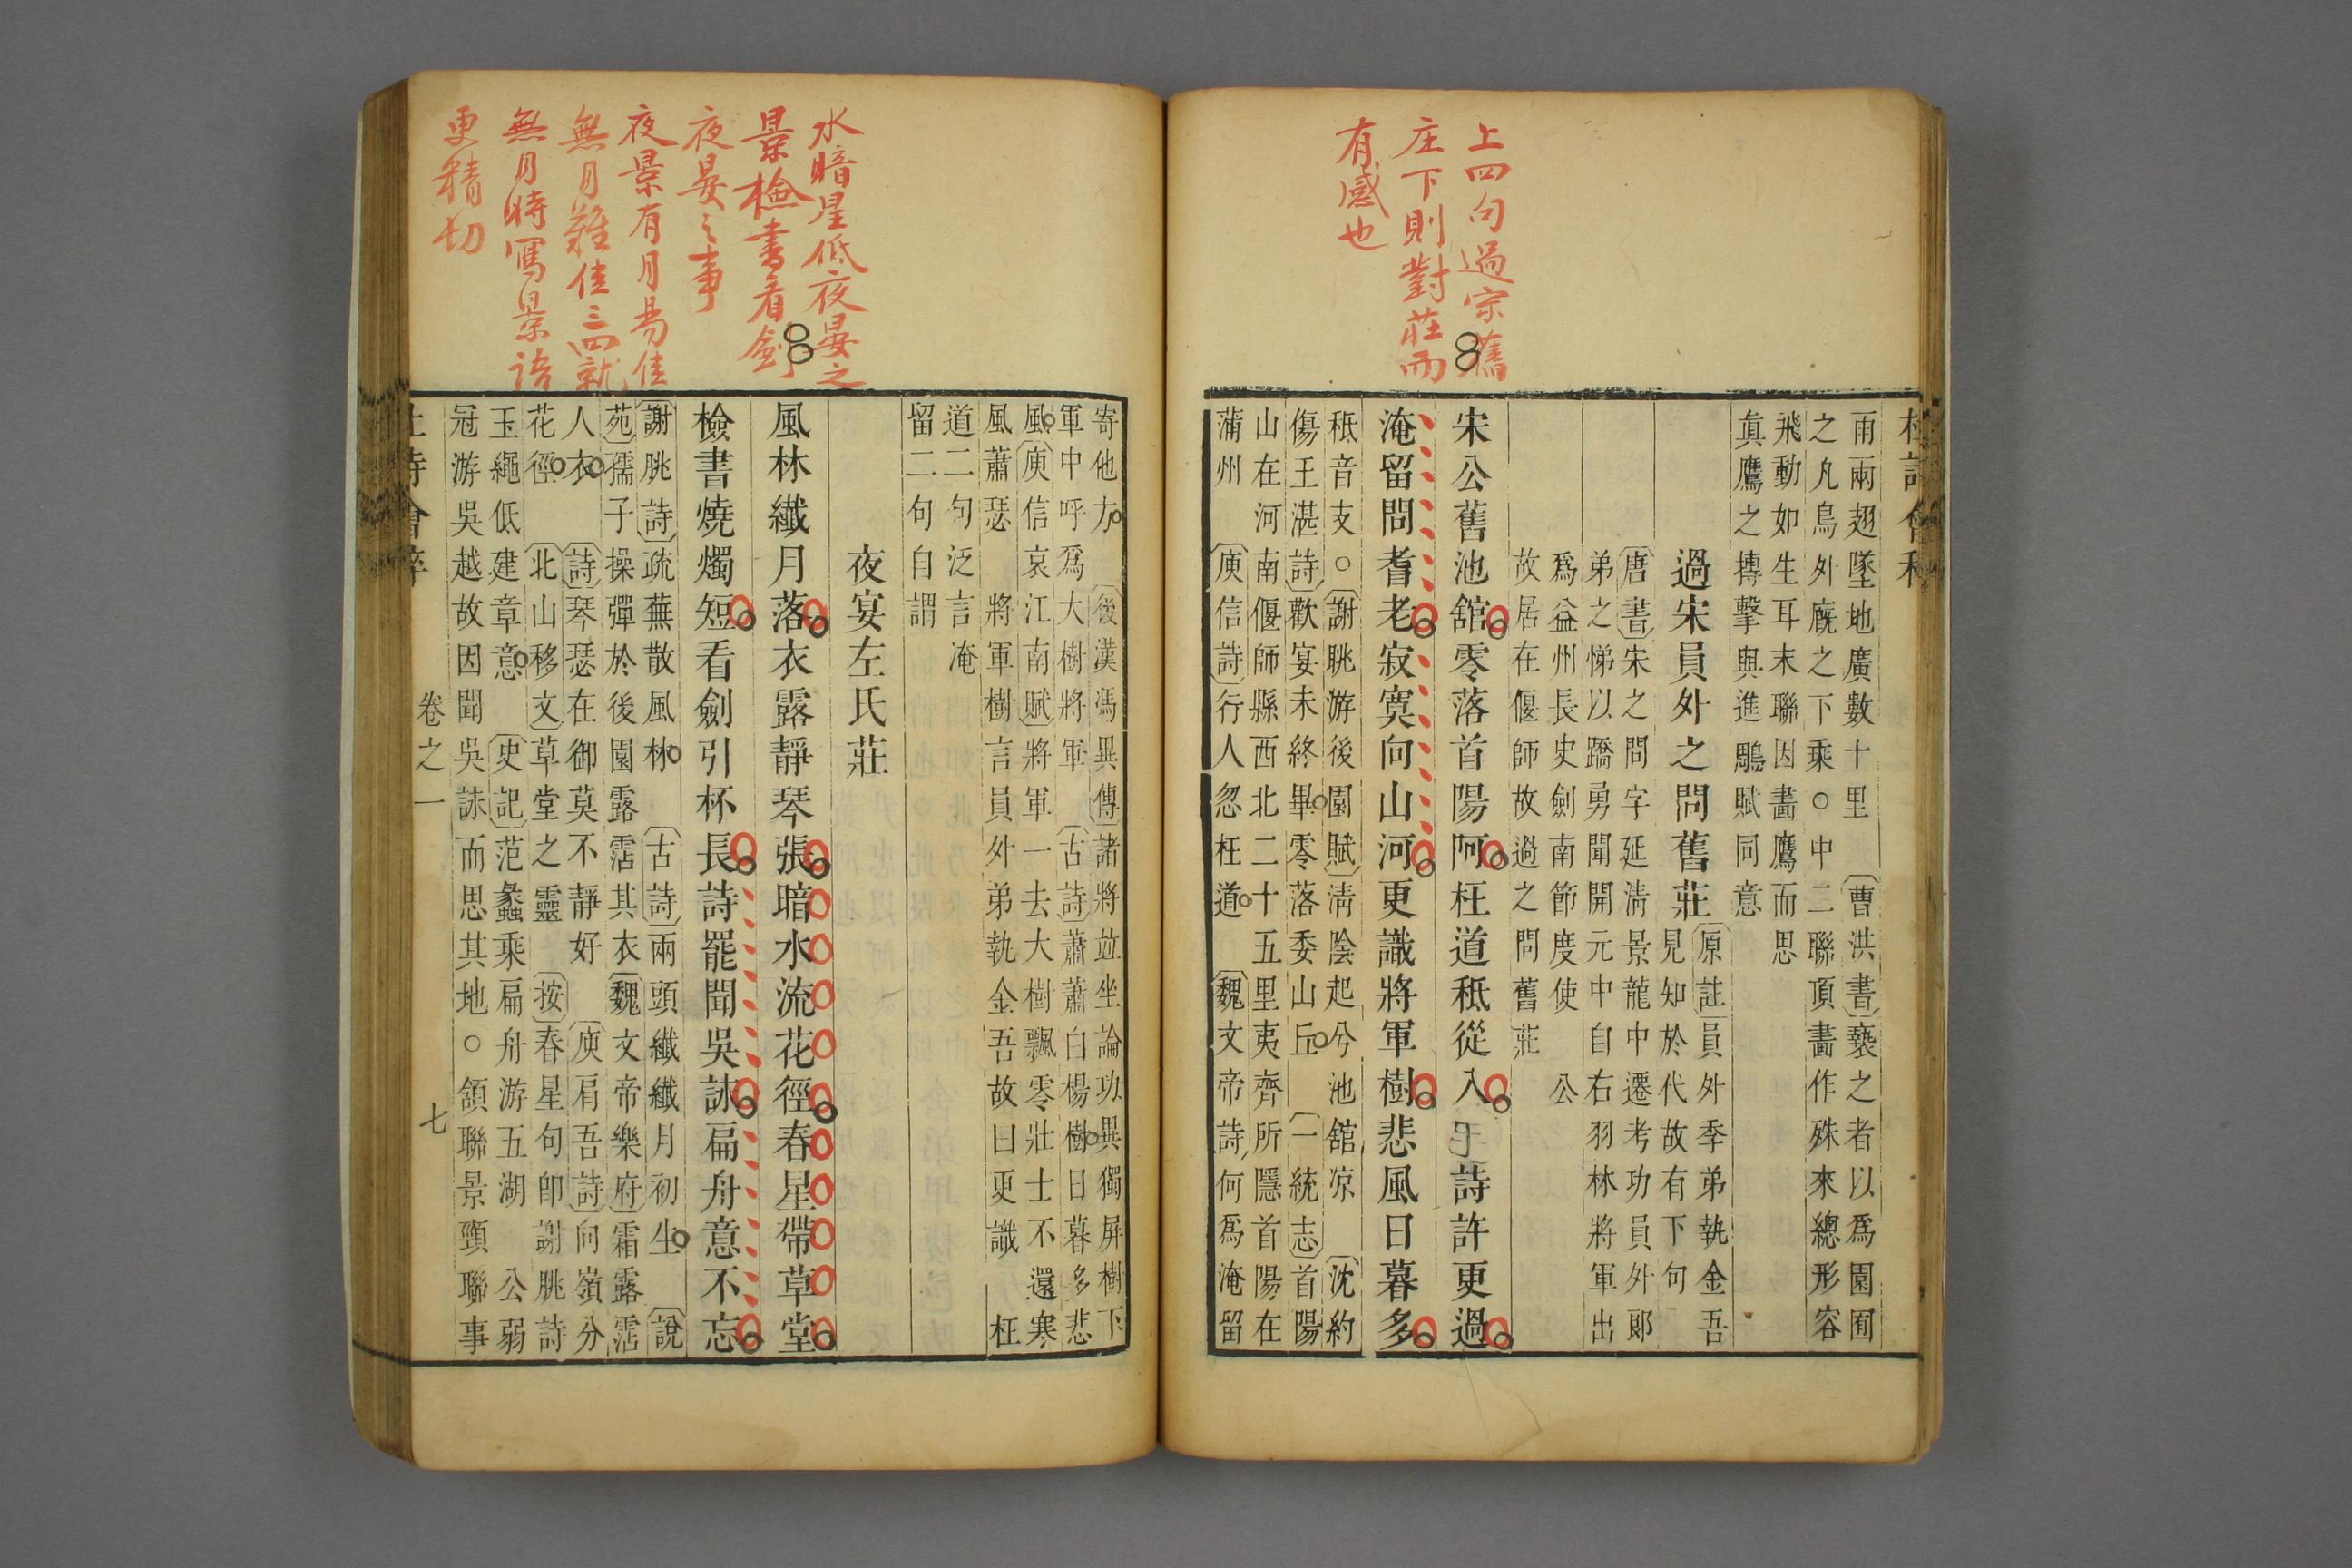 上四句過宗舊
庄下則對莊而
有感也
雨兩翅墜地廣數十里〔曹洪書〕褻之者以爲園囿
之凡鳥外廐之下乘○中二聯頂畫作殊來總形容
飛動如生耳末聯因畫鷹而思
眞鷹之摶擊與進鵰賦同意
過宋員外之問舊莊
〔原註〕員外季弟執金吾
見知於代故有下句
〔唐書〕宋之問字延清景龍中遷考功員外郞
弟之悌以蹻勇聞開元中自右羽林將軍出
爲益州長史劍南節度使 公
故居在偃師故過之問舊莊
宋公舊池舘零落首陽阿枉道秪從入詩許更過
淹留問耆老寂寞向山河更識將軍樹悲風日暮多
秪音支○〔謝眺游後園賦〕淸陰起兮池舘凉〔沈約
傷王湛詩〕歡宴未終畢零落委山丘〔一統志〕首陽
山在河南偃師縣西北二十五里夷齊所隱首陽在
蒲州〔庾信詩〕行人忽枉道〔魏文帝詩〕何爲淹留
寄他方〔後漢馮異傳〕諸將竝坐論功異獨屏樹下
軍中呼爲大樹將軍〔古詩〕蕭蕭白楊樹日暮多悲
風〔庾信哀江南賦〕將軍一去大樹飄零壯士不還寒
風蕭瑟 將軍樹言員外弟執金吾故曰更識 枉
道二句泛言淹
留二句自謂
夜宴左氏莊
風林纖月落衣露靜琴張暗水流花徑春星帶草堂
檢書燒燭短看劍引杯長詩罷聞吳詠扁舟意不忘
〔謝朓詩〕疏蕪散風林〔古詩〕兩頭纖纖月初生〔說
苑〕孺子操彈於後園露霑其衣〔魏文帝樂府〕霜露霑
人衣〔詩〕琴瑟在御莫不靜好〔庾肩吾詩〕向嶺分
花徑〔北山移文〕草堂之靈〔按〕春星句卽謝朓詩
玉繩低建章意〔史記〕范蠡乘扁舟游五湖 公弱
冠游吳越故因聞吳詠而思其地○頷聯景頸聯事
卷之一
七
水暗星低夜晏之
景檢書看劍
夜晏之事
夜景有月易佳
無月難佳三四就
無月時寫景語
更精切